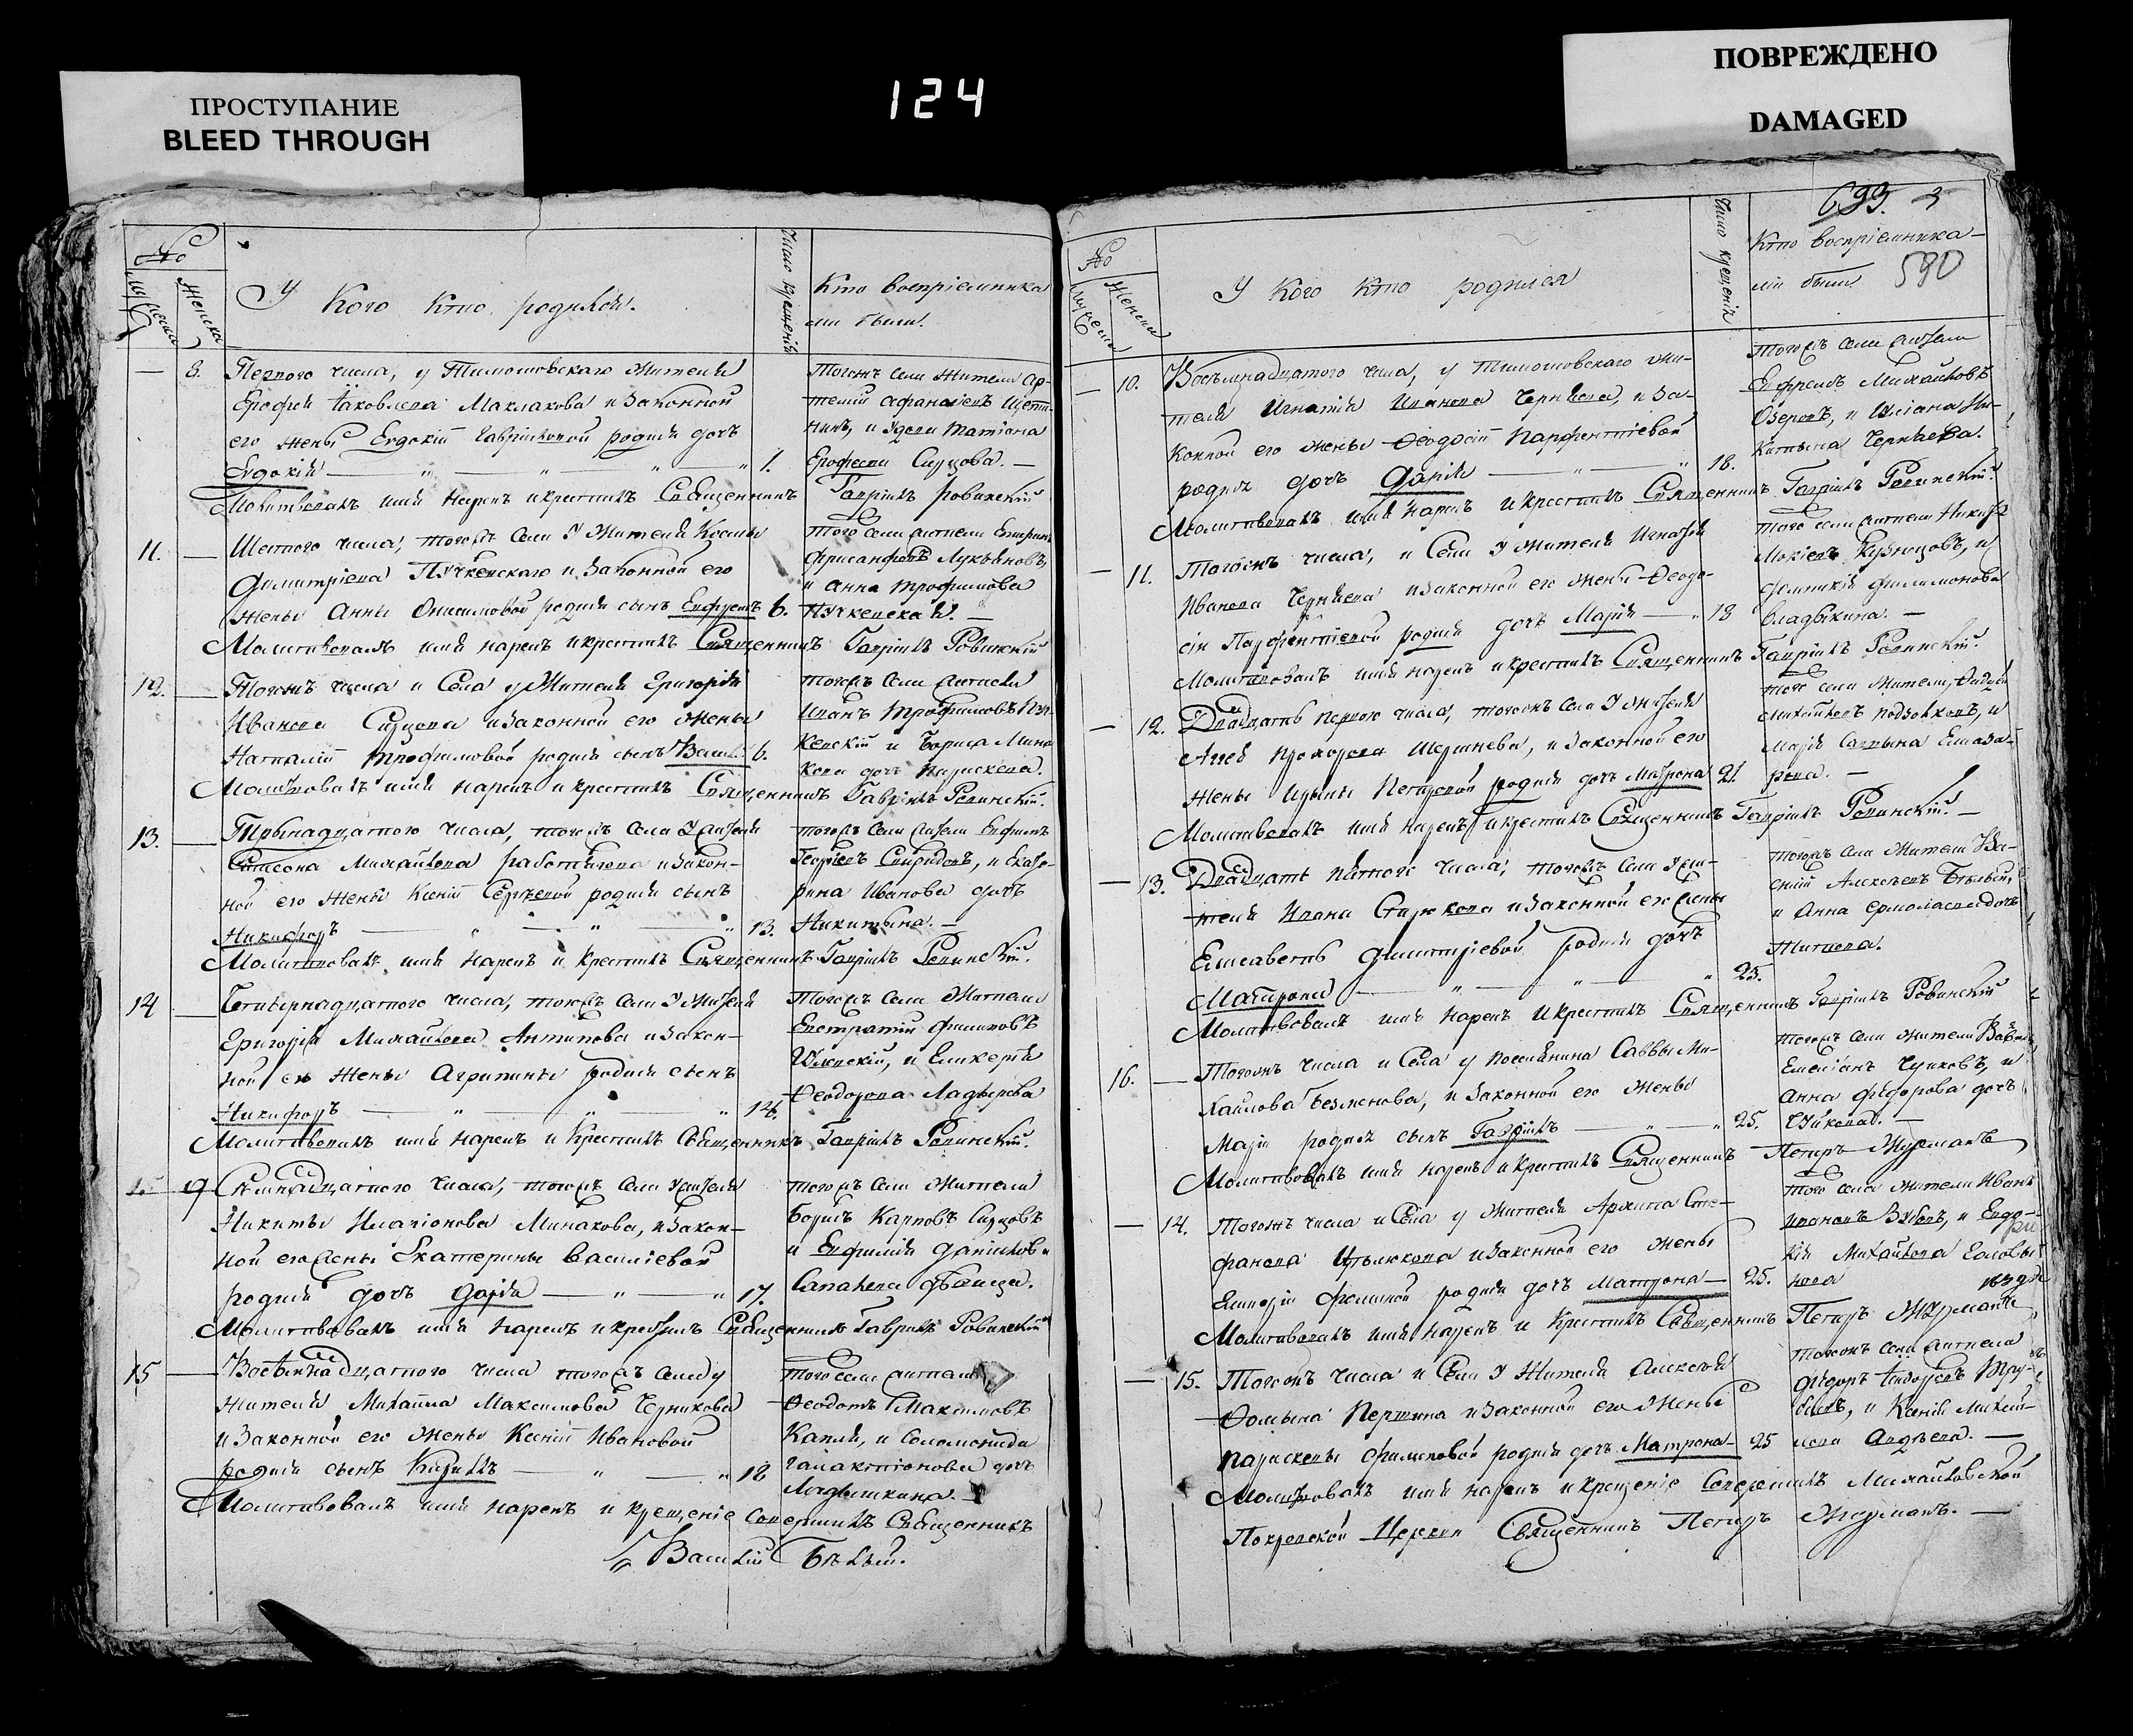 ПРОСТУПАНИЕ
BLEED THROUGH
124
ПОВРЕЖДЕНО
DAMAGED
№
Женска
У кого кто родился.
Число крещенія
Кто воспріемника
ми были.
8.
Перваго числа, у Тимошовскаго жителя
Ерофея Яковлева Маклакова и законной
его жены Евдокіи Гавриловой родися дочь
Евдокія 1.
Тогожъ села житель Ар-
темій Афанасіевъ Щети-
нинъ, и вдова Татіана
Ерофеева Сирцова.
Молитвовалъ имя нарекъ и крестилъ Священникъ Гавріилъ Ровинскій
11.
Шестого числа, тогожъ села у жителя Космы
Димитріева Пучковскаго и законной его
жены Анны Онисимовой родися сынъ Ефремъ 6.
того села жители
Хрисанфовъ Лукьяновъ,
и Анна Трофимова
Молитвовалъ имя нарекъ и крестилъ Священникъ Гавріилъ Ровинскій
12.
Тогожъ числа и села у жителя Григорія
Иванова Сирцова и законной его жены
Наталіи Трофимовой родися сынъ Василій 6.
тогожъ села жители
Иванъ Трофимовъ
и Бориса Мина
кова дочь Параскева.
Молитвовалъ имя нарекъ и крестилъ Священникъ Гавріилъ Ровинскій.
13.
Трынадцатого числа, тогожъ села у жителя
Симеона Михайлова и закон-
ной его жены Ксеніи Сергѣевой родися сынъ
Никифоръ 13.
тогожъ села жители
Георгіевъ Спиридовъ, и Екате-
рина Иванова дочь
Никитына.
Молитвовалъ имя нарекъ и крестилъ Священникъ Гавріилъ Ровинскій.
14
Четвернадцатого числа, тогожъ села у жителя
Григорія Михайлова Антипова и закон-
ной его жены Агрипины родися сынъ
Никифоръ 14.
Тогожъ села жители
Евстратій Филиповъ
и Гликерія
Ѳеодорова
Молитвовалъ имя нарекъ и крестилъ Священникъ Гавріилъ Ровинскій.
9
Семнадцатого числа, тогожъ села у жителя
Никиты Иларіонова Минакова, и закон-
ной его жены Екатерины Василіевой
родися дочь Дарія 17.
тогожъ села жители
Борисъ Карповъ Сирцовъ
и Евфимія Данилова
дѣвица.
Молитвовалъ имя нарекъ и крестилъ Священникъ Гавріилъ Ровинскій
15
Восемнадцатого числа тогожъ села у
жителя Михаила Максимова Черникова
и законной его жены Ксеніи Ивановой
родися сынъ Кирилъ 18
того села жители
Ѳеодотъ Максимовъ
и Соломонида
Галактіонова дочь
Молитвовалъ имя нарекъ и крещеніе совершилъ Священникъ
Василій Бѣлый.
693.
590
№
Женска
У кого кто родился
Число крещенія
Кто воспріемника-
ми были
10.
Восемнадцатого числа, у Тимошовскаго жи-
теля Игнатія Иванова Черняева, и за-
конной его жены Ѳеодосіи Парфентіевой
родися дочь Дарія 18.
тогожъ села жители
Ефремъ Михайловъ
Озеровъ, и Уліана Ни-
китына Черняева.
Молитвовалъ имя нарекъ и крестилъ Священникъ Гавріилъ Ровинскій.
11.
Тогожъ числа, и села у жителя Игнатія
Иванова Черняева и законной его жены Ѳеодо-
сіи Парфентіевой родися дочь Марія 18
того села жители Никита
Мокіевъ Кузнецовъ, и
Филимонова
Владыкина.
Молитвовалъ имя нарекъ и крестилъ Священникъ Гавріилъ Ровинскій.
12.
Двадцать первого числа, тогожъ села у жителя
Прохорова и законной его
жены Ирыны Петровой родися дочь Матрона 21.
того села жители
Михайловъ и
Марія
Молитвовалъ имя нарекъ и крестилъ Священникъ Гавріилъ Ровинскій.
13.
Двадцать пятого числа, тогожъ села у жи-
теля Ивана и законной его жены
Елисаветы Димитріевой родися дочь
Матрона 25.
тогожъ села жители Ва-
силій Алексѣевъ Бѣлый,
и Анна Ермолаева дочь
Молитвовалъ имя нарекъ и крестилъ Священникъ Гавріилъ Ровинскій
16.
Тогожъ числа и села у поселянина Саввы Ми-
хайлова Безменова, и законной его жены
Маріи родися сынъ Гавріилъ 25.
тогожъ села жители
Емеліанъ Чуйковъ, и
Анна Фидорова дочь
Чуйкова.
Молитвовалъ имя нарекъ и крестилъ Священникъ Петръ Журманъ
14.
Тогожъ числа и села у жителя Архипа Сте-
фанова и законной его жены
родися дочь Матрона 25.
того села жители Иванъ
Ивановъ Зубовъ, и Евдо-
кія Михайлова
Молитвовалъ имя нарекъ и крестилъ Священникъ Петръ Журманъ
15.
Тогожъ числа и села у жителя Алексѣя
Ѳомына Першина и законной его жены
Параскевы Филиповой родися дочь Матрона 25
тогожъ села жители
и Ксенія Михай-
лова Авдѣева.
Молитвовалъ имя нарекъ и крещеніе совершилъ Михайловской
Покровской Церкви Священникъ Петръ Журманъ.